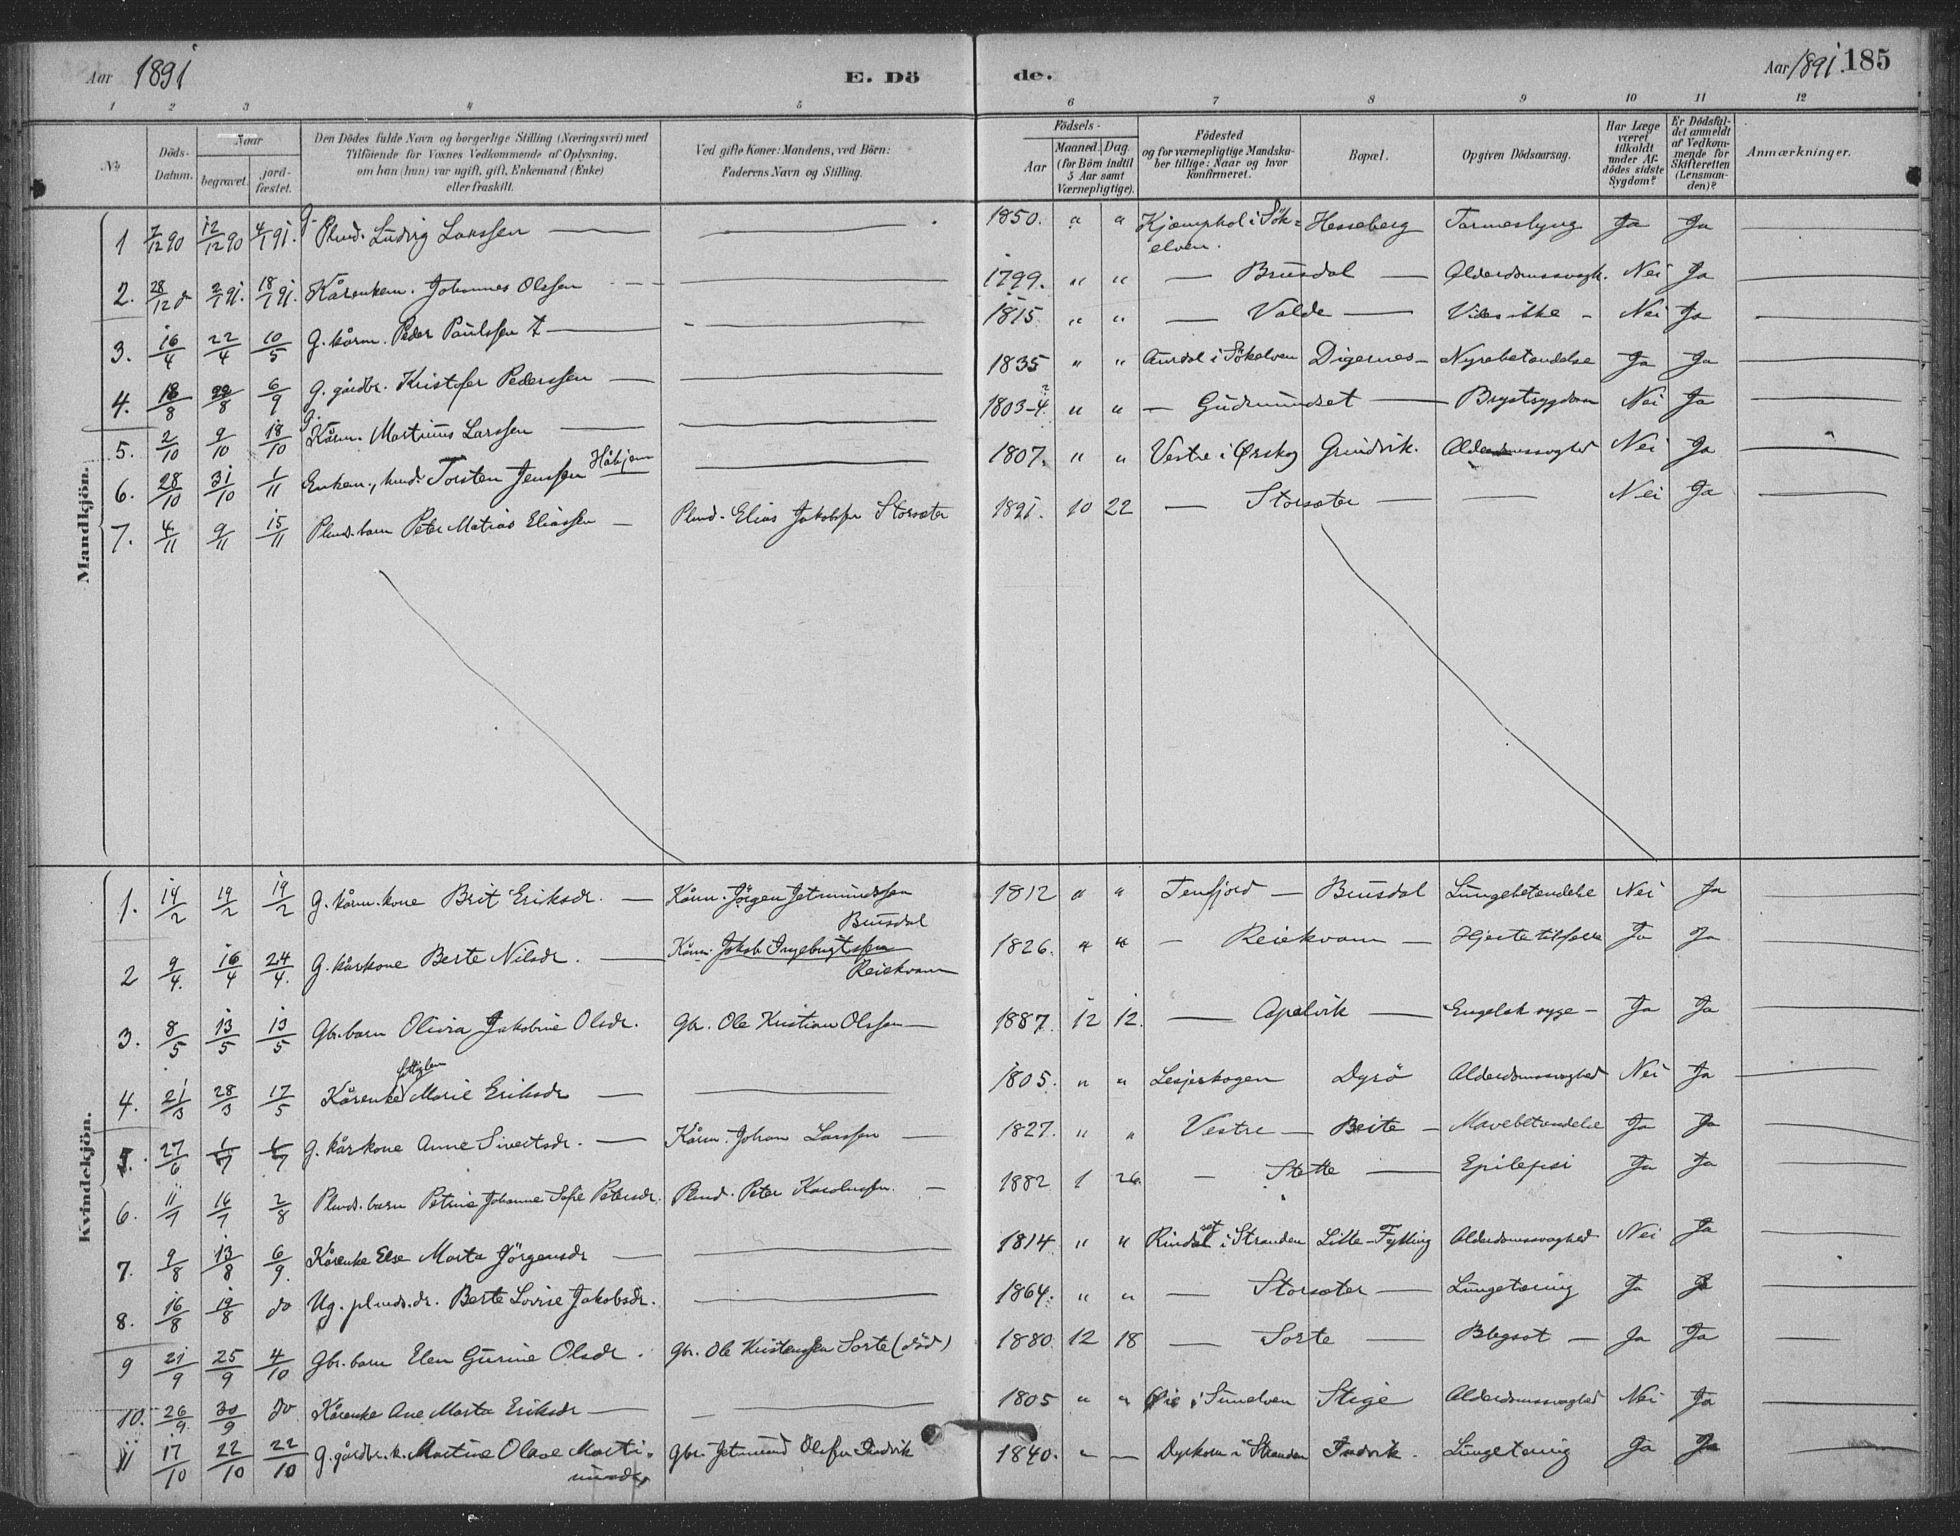 Aar 1891
E. Dö
de.
Aar 1891. 185
1 2 3 4 5 6 7 8 9 10 11 12
No
Döds-
Datum.
Naar
begravet.
jord-
fæstet.
Den Dödes fulde Navn og borgerlige Stilling (Næringsvei) med
Tilföiende for Voxnes Vedkommende af Oplysning,
om han (hun) var ugift, gift, Enkemand (Enke)
eller fraskilt.
Ved gifte Koner: Mandens, ved Börn:
Faderens Navn og Stilling.
Födsels-
Aar
Maaned. Dag.
(for Börn indtil
5 Aar samt
Værnepligtige).
Födested
og for værnepligtige Mandska-
ber tillige: Naar og hvor
konfirmeret.
Bopæl.
Opgiven Dödsaarsag.
Har Læge
været
tilkaldt
under Af-
dödes sidste
Sygdom?
Er Dödsfal-
det anmeldt
af Vedkom-
mende for
Skifteretten
(Lensman-
den)?
Anmærkninger.
Mandkjön.
1 7/12 90 12/12 90 4/1 91. G. Plmd. Ludvig Larssen — — 1850. " " Kjæmphol i Sök=
elven. Hesseberg Tarmeslyng Ja Ja
2. 28/12 d 2/1 91. 18/1 91. Kårenkem. Johannes Olssen — — 1799. " " — Brusdal — Alderdomssvagh. Nei Ja
3. 16/4 22/4 10/5 G. kårm. Peder Paulssen — — 1815. " " — Valde — Vides ikke - Nei Ja
4. 18/8 22/8 6/9 G. gårdbr. Kristofer Pederssen — — 1835 " " Aurdal i Sökelven Digernes - Nyrebetændelse Ja Ja
5. 2/10 9/10 18/10 G. Kårm. Martinus Larssen — — 1803-4? " " — Gudmundset — Brystsygdom Nei Ja
6. 28/10 31/10 1/11 Enkem., Torsten Jenssen Håbjørn — 1807. " " Vestre i Ørskog Grindvik. Alderdomssvaghed Nei Ja
7. 4/11 9/11 15/11 Plmds.barn Peter Matias Eliassen — Plmd. Elias Jakobssen Storsæter 1891. 10 22 — Storsæter — — Nei Ja
Kvindekjön.
1. 14/2 19/2 19/2 G. kårm.kone Brit Eriksdr. — Kårm. Jörgen Jetmundssen
Brusdal 1812 " " Tenfjord — Brusdal Lungebetændelse Nei Ja
2 9/4. 16/4 24/4. G. kårkone Berte Nilsdr. — Kårm. Jakob Ingebrigtssen
Reiekvam 1826. " " — Reiekvam — Hjertetilfælde Ja Ja
3. 8/5 13/5 13/5 Gbr.barn Olivia Jakobine Olsdr. Gbr. Ole Kristian Olssen — 1887. 12 12. — Apalvik — Engelsk syge - Ja Ja
4. 21/3 28/3 17/5 Kårenke fattiglem Marie Eriksdr — — 1805. " " Lesjeskogen Dyrö Alderdomssvaghed Nei Ja
5. 27/6 1/7 1/7 G. kårkone Anne Sivertsdr. — Kårm. Johan Larssen — 1827. " " Vestre — Beite - Mavebetændelse Ja Ja
6. 11/7 16/7 2/8 Plmds.barn Petrine Johanne Sofie Petersdr. Plmd. Peter Karolussen. — 1882 1 26. — Stette — Epilepsi Ja Ja
7. 9/8 13/8 6/9. Kårenke Else Marta Jörgensdr — — 1814 " " Rindalset i Stranden Litle-Fylling Alderdomssvaghed Nei Ja
8. 16/8 19/8 do Ug. plmds.dr. Berte Lovise Jakobsdr. — 1864. " " — Storsæter — Lungetæring Ja Ja
9 21/9 25/9 4/10 Gbr.barn Elen Gurine Olsdr. Gbr. Ole Kristenssen Sorte (död) 1880. 12 18 — Sorte — Blegsot — Ja Ja
10. 26/9. 30/9 do Kårenke Ane Marta Eriksdr — — 1805 " " Øie i Sunelven Stige Alderdomssvaghed Nei Ja
11 17/10 22/10 22/10 G. gårdbr.k. Martine Olave Marti-
nusdr. Gbr. Jetmund Olssen Indvik 1840. " — Dyrkorn i Stranden Indvik. Lungetæring Ja Ja